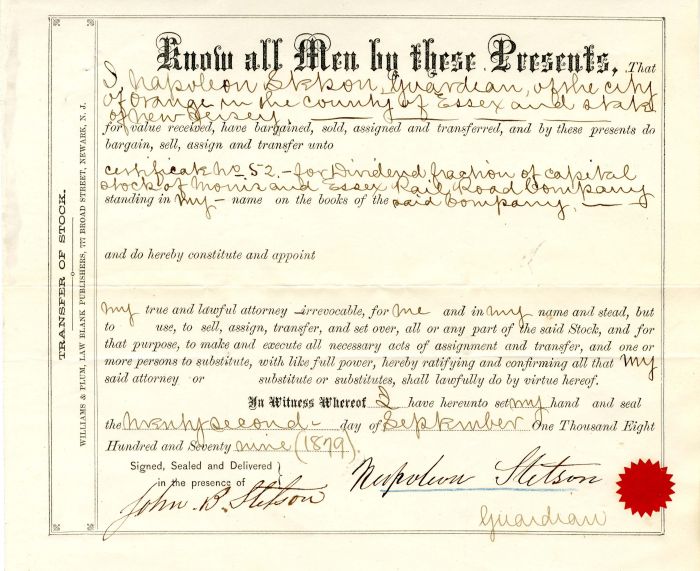 Know all Men by these Presents, That
I Napoleon Stetson, Guardian, of the city
of Orange in the county of Essex and state
of New Jersey
for value received, have bargained, sold, assigned and transferred, and by these presents do
bargain, sell, assign and transfer unto
certificate No 52.- for Dividend fraction of capital
stock of Morris and Essex Rail Road Company
standing in my - name on the books of the said Company.
and do hereby constitute and appoint
my true and lawful attorney -irrevocable, for me and in my name and stead, but
to use, to sell, assign, transfer, and set over, all or any part of the said Stock, and for
that purpose, to make and execute all necessary acts of assignment and transfer, and one or
more persons to substitute, with like full power, hereby ratifying and confirming all that my
said attorney or substitute or substitutes, shall lawfully do by virtue hereof.
In Witness Whereof I have hereunto set my hand and seal
the twenty second - day of September One Thousand Eight
Hundred and Seventy nine (1879).
Signed, Sealed and Delivered }
in the presence of
Napoleon Stetson
John B. Stetson
Guardian
TRANSFER OF STOCK.
WILLIAMS & PLUM, LAW BLANK PUBLISHERS, 777 BROAD STREET, NEWARK, N. J.